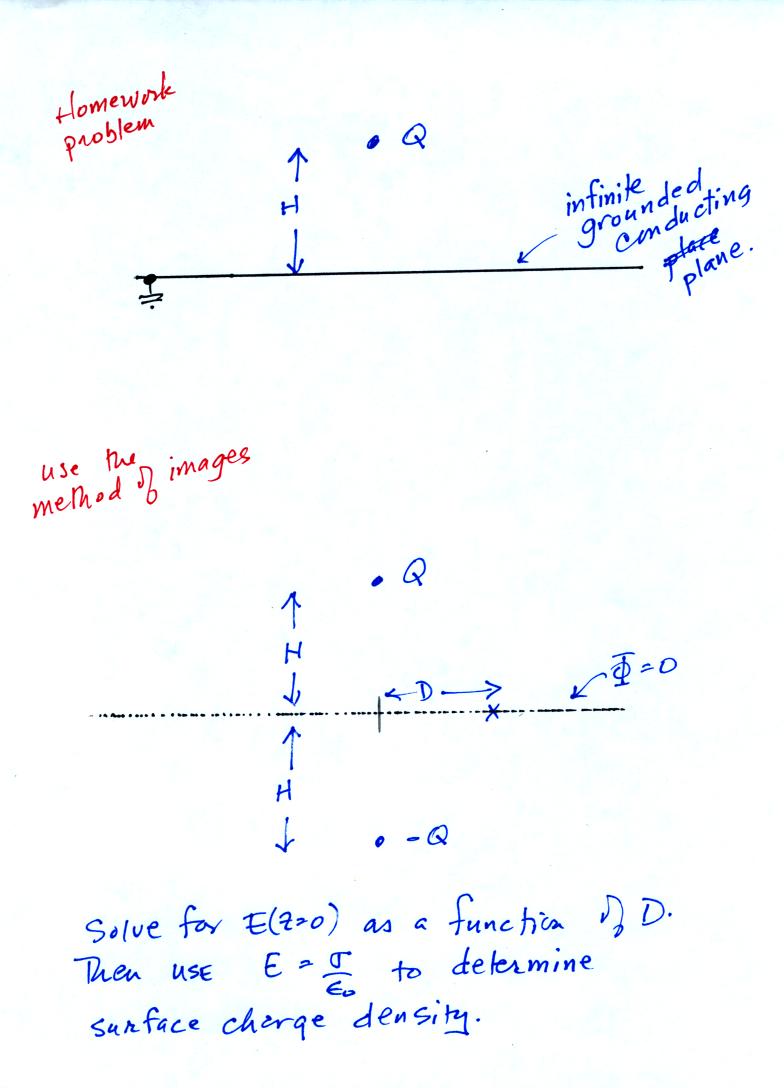 Homework
problem
Q
H
infinite
grounded
conducting
place
plane.
use the
method of images
Q
H
D
Φ=0
H
-Q
Solve for E(z=0) as a function of D.
Then use E = σ/ϵ₀ to determine
surface charge density.